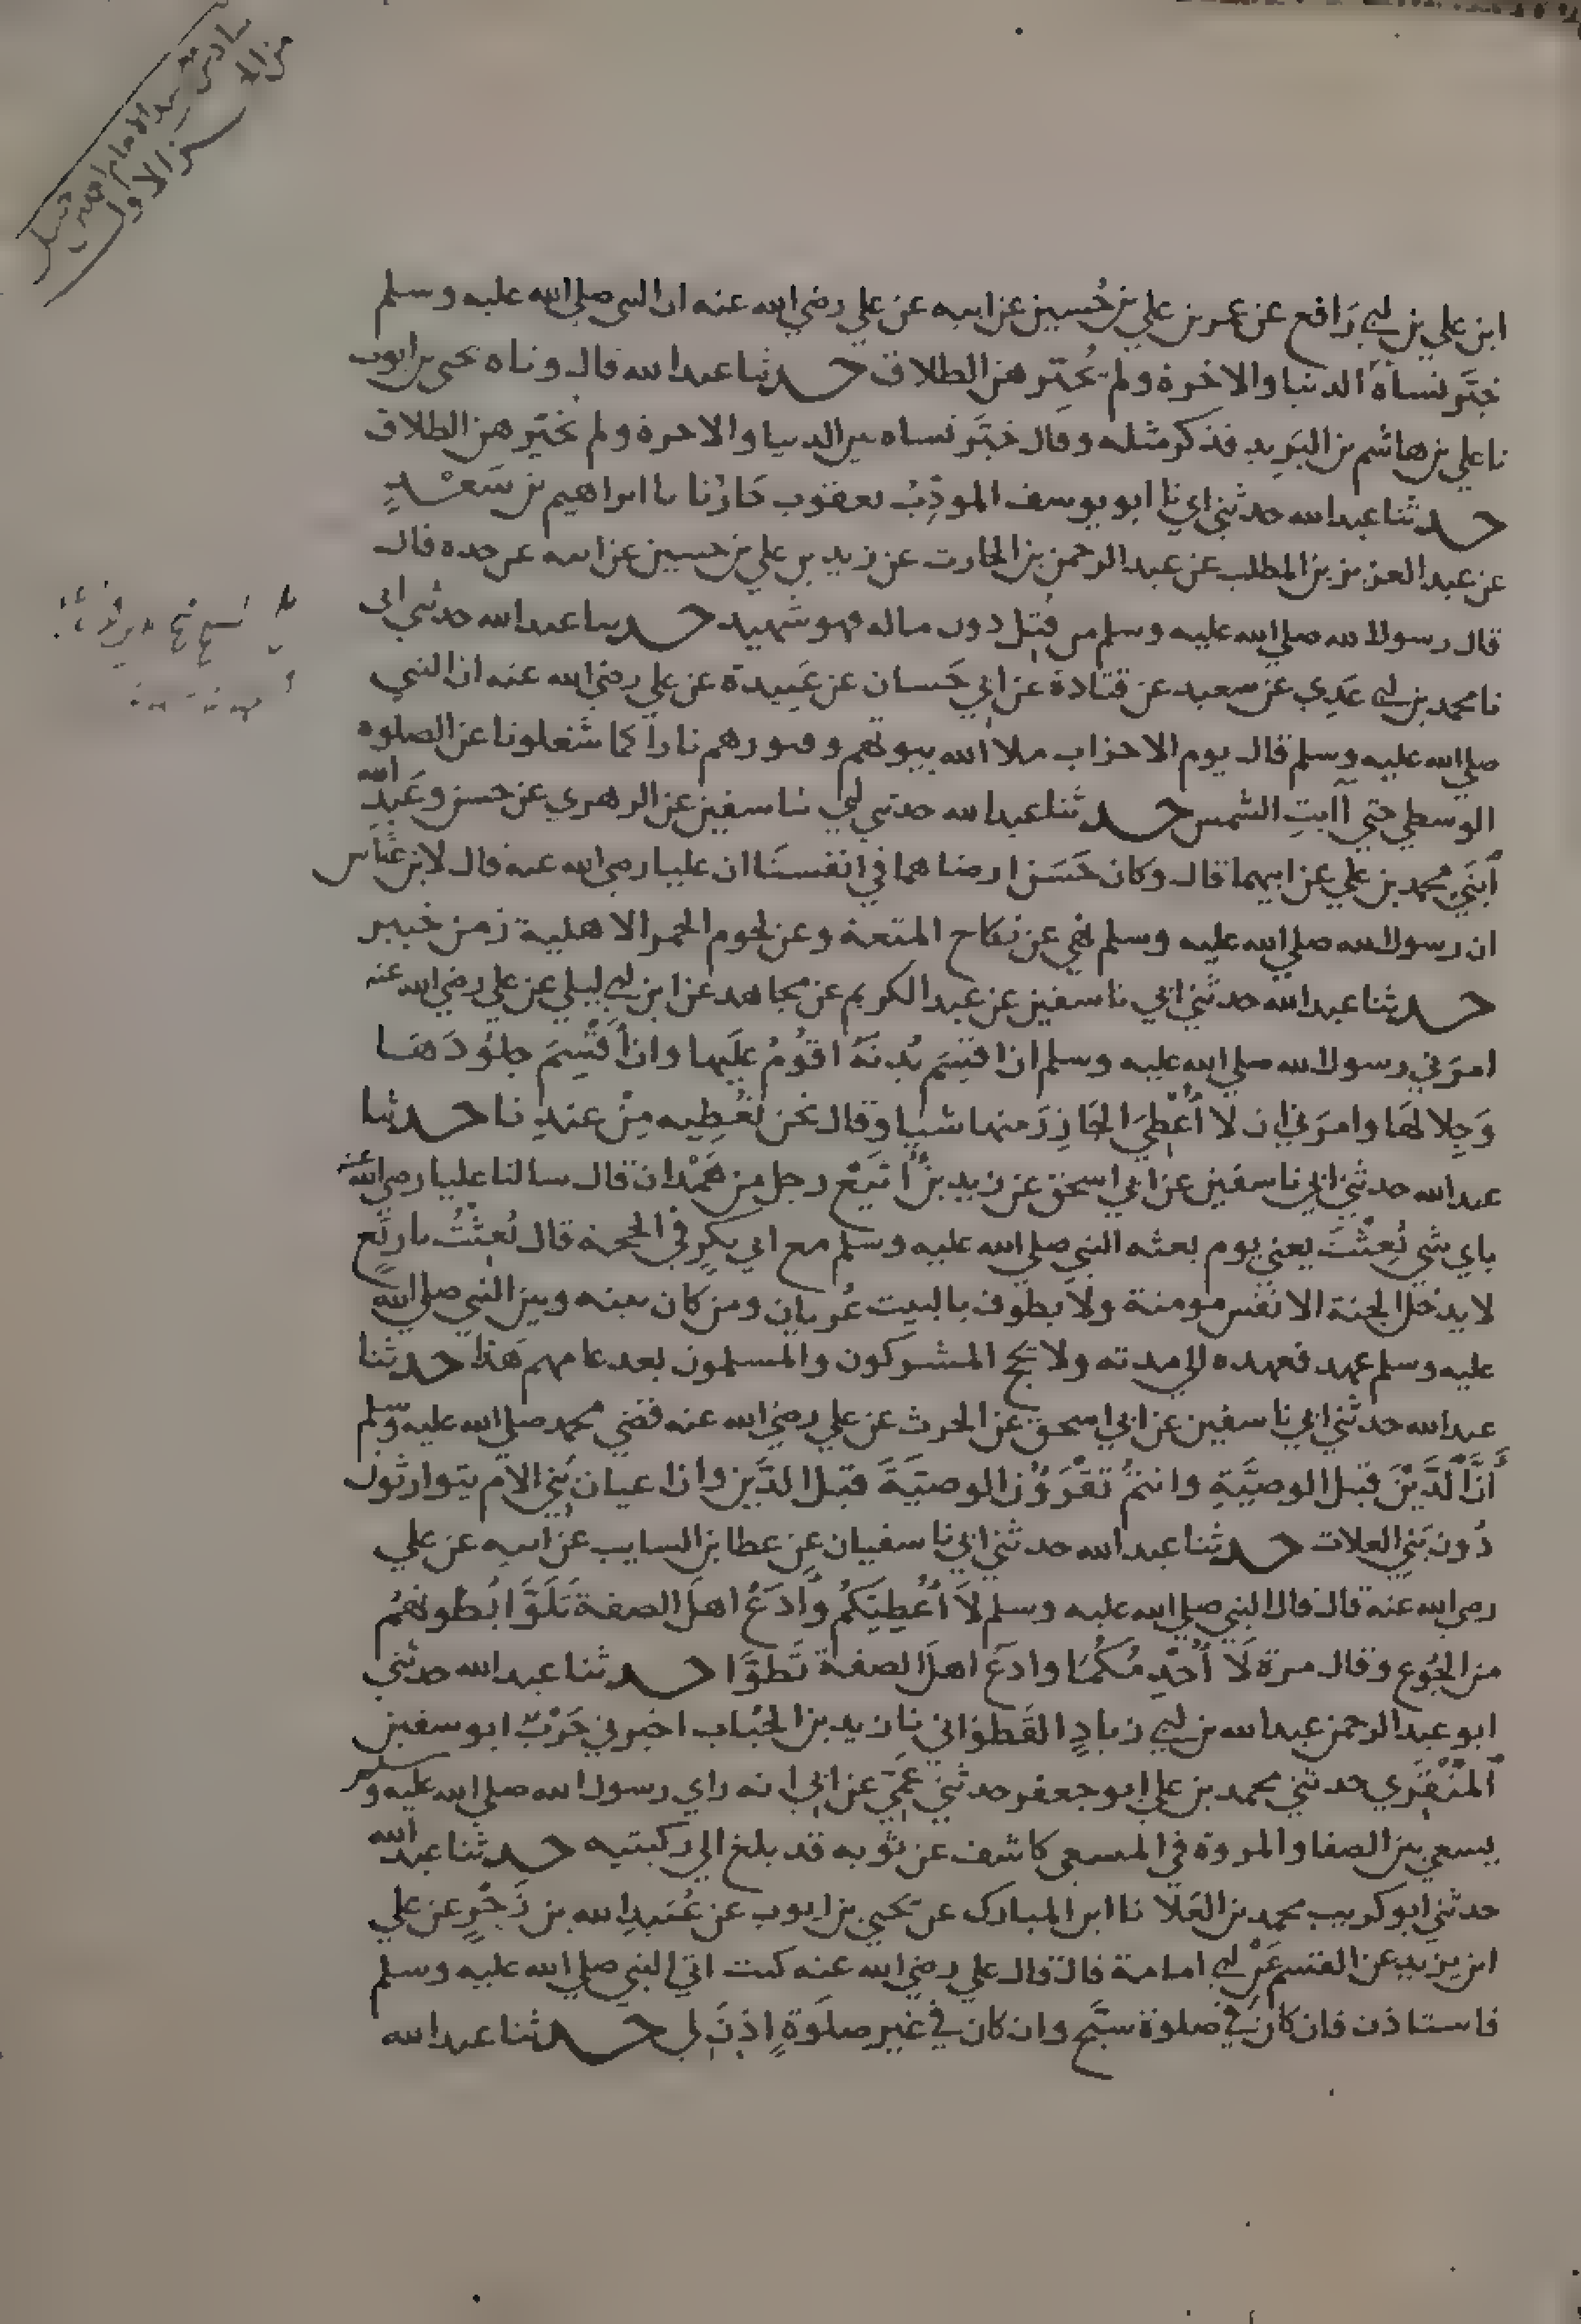 ابن علي بن ابي رَافع عن عمر بن علي بن حُسين عن ابيه عن علي رضي الله عنه ان النبي صلي الله عليه وسلم
خيَّر نساه الدنيا والاخرة ولم يُخيّرهن الطلاق حدثنا عبدالله قال وناه يحيى بن ايوب
نا علي بن هاشم بن البَرِيدِ فذكر مثله وقال خيَّر نساه بين الدنيا والاخرة ولم يخيّرهن الطلاق
حدثنا عبدالله حدثني ابي نا ابو يوسف المودِّبُ يعقوب جَارُنا نا ابراهيم بن سَعْدٍ
عن عبد العزيز بن المطلب عن عبد الرحمن بن الحارث عن زيد بن علي بن حسين عن ابيه عن جده قال
قال رسول الله صلي الله عليه وسلم من قُتِل دون ماله فهو شهيد حدثنا عبدالله حدثني ابي
نا محمد بن ابي عَدِي عن سعيد عن قتادة عن ابي حَسان عن عَبيدة عن علي رضي الله عنه ان النبي
صلي الله عليه وسلم قال يوم الاحزاب ملا الله بيوتهم وقبورهم ناراً كما شغلونا عن الصلوة
الوسطي حتي آبتِ الشمس حدثنا عبدالله حدثني ابي نا سفين عن الزهري عن حسن وعَبدِ الله
اَبنَي محمد بن علي عن ابيهما قال وكان حَسَن ارضاهما في انفسنَا ان عليا رضي الله عنه قال لابن عبَّاس
ان رسول الله صلي الله عليه وسلم نهي عن نكاح المتعة وعن لحوم الحمر الاهلية زمن خيبر
حدثنا عبدالله حدثني ابي نا سفين عن عبد الكريم عن مجاهد عن ابن ابي ليلي عن علي رضي الله عنه
امرَني رسول الله صلي الله عليه وسلم ان اقسِمَ بُدنَهُ اقُومُ عليها وان اَقْسِمَ جلُودَهَا
وَجِلالهَا وامرَني ان لا اُعْطِيَ الجَازِرَ منها شيا وقال نحن نُعْطِيه مِنْ عندِنا حدثنا
عبدالله حدثني ابي نا سفين عن ابي اسحق عن زيد بن اُثَيْعٍ رجل من هَمْدان قال سالنا عليا رضي الله عنه
باي شي بُعِثْتَ يعني يوم بعثه النبي صلي الله عليه وسلم مع ابي بكرٍ في الحجة قال بُعثْتُ باربَع
لا يدخل الجنة الا نفس مومنة ولا يطوف بالبيت عُريان ومن كان بينه وبين النبي صلي الله
عليه وسلم عهد فعهده الي مدته ولا يحج المشركون والمسلمون بعد عامهم هَذا حدثنا
عبدالله حدثني ابي نا سفين عن ابي اسحق عن الحرث عن علي رضي الله عنه قضي محمد صلي الله عليه وسلم
أنَّ الدَّيْنَ قبل الوصيَّةِ وانتمُ تقْرَؤُن الوصيّةَ قبل الدَّين وان اعيان بَني الام يتوارثون
دُون بَني العلات حدثنا عبدالله حدثني ابي نا سفيان عن عطا بن السايب عن ابيه عن علي
رضي الله عنه قال قال النبي صلي الله عليه وسلم لاَ اُعْطِيَكُم وَاَدَعُ اهلَ الصفة تَلَوَّا بُطونهُم
من الجُوع وقال مرة لاَ اُخْدِمُكُمَا وادَعُ اهلَ الصفة تَطوَّا حدثنا عبدالله حدثني
ابو عبد الرحمن عبدالله بن ابي زيادٍ القَطوَاني نا زيد بن الحُبَاب اخبرني حَرْبٌ ابو سفين
المنْقَري حدثني محمد بن علي ابو جعفر حدثني عَمّي عن ابي انه راي رسول الله صلي الله عليه وسلم
يسعي بين الصفا والمروة في المسعي كاشف عن ثوبه قد بلغ الي ركبتيه حدثنا عبد الله
حدثني ابو كريب محمد بن العَلا نا ابن المبارك عن يحيي بن ايوب عن عُبَيدِ الله بن زَحْرٍ عن علي
ابن يزيد عن القسم عَنْ ابي امامة قال قال علي رضي الله عنه كنت اتي النبي صلي الله عليه وسلم
فاستاذن فان كان في صلوة سبَّح وان كان في غير صلَوةٍ اذِنَ لي حدثنا عبدالله